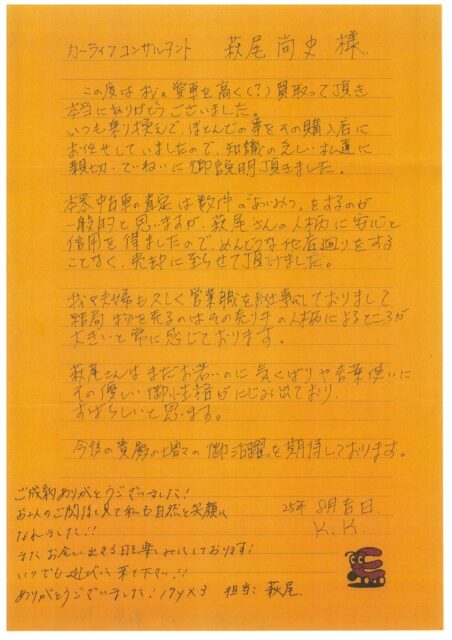 カーライフコンサルタント 萩尾尚史様
この度は私の愛車を高く(?)買取って頂き
本当にありがとうございました。
いつも乗り換えで、ほとんどの事をその購入店に
お任せしていましたので、知識の乏しい私達に
親切、ていねいに御説明頂きました。
本来中古車の査定は数件の“あいみつ”をするのが
一般的と思いますが、萩尾さんの人柄に安心と
信用を得ましたので、めんどうな他店廻りをする
ことなく、売却に至らせて頂けました。
我々夫婦も久しく営業職を仕事にしておりまして
結局物を売るのはその売り手の人柄によるところが
大きいと常に感じております。
萩尾さんはまだお若いのに気くばりや言葉使いに
その優しい御性格がにじみ出ており
すばらしいと思います。
今後の貴殿の増々の御活躍を期待しております。
25年 8月吉日
K.K.
ご成約ありがとうございました!
お2人のご関係を見て私も自然と笑顔に
なれました!!
またお会い出来る日を楽しみにしております!
いつでも遊びに来て下さい!!
ありがとうございました! 担当:萩尾.